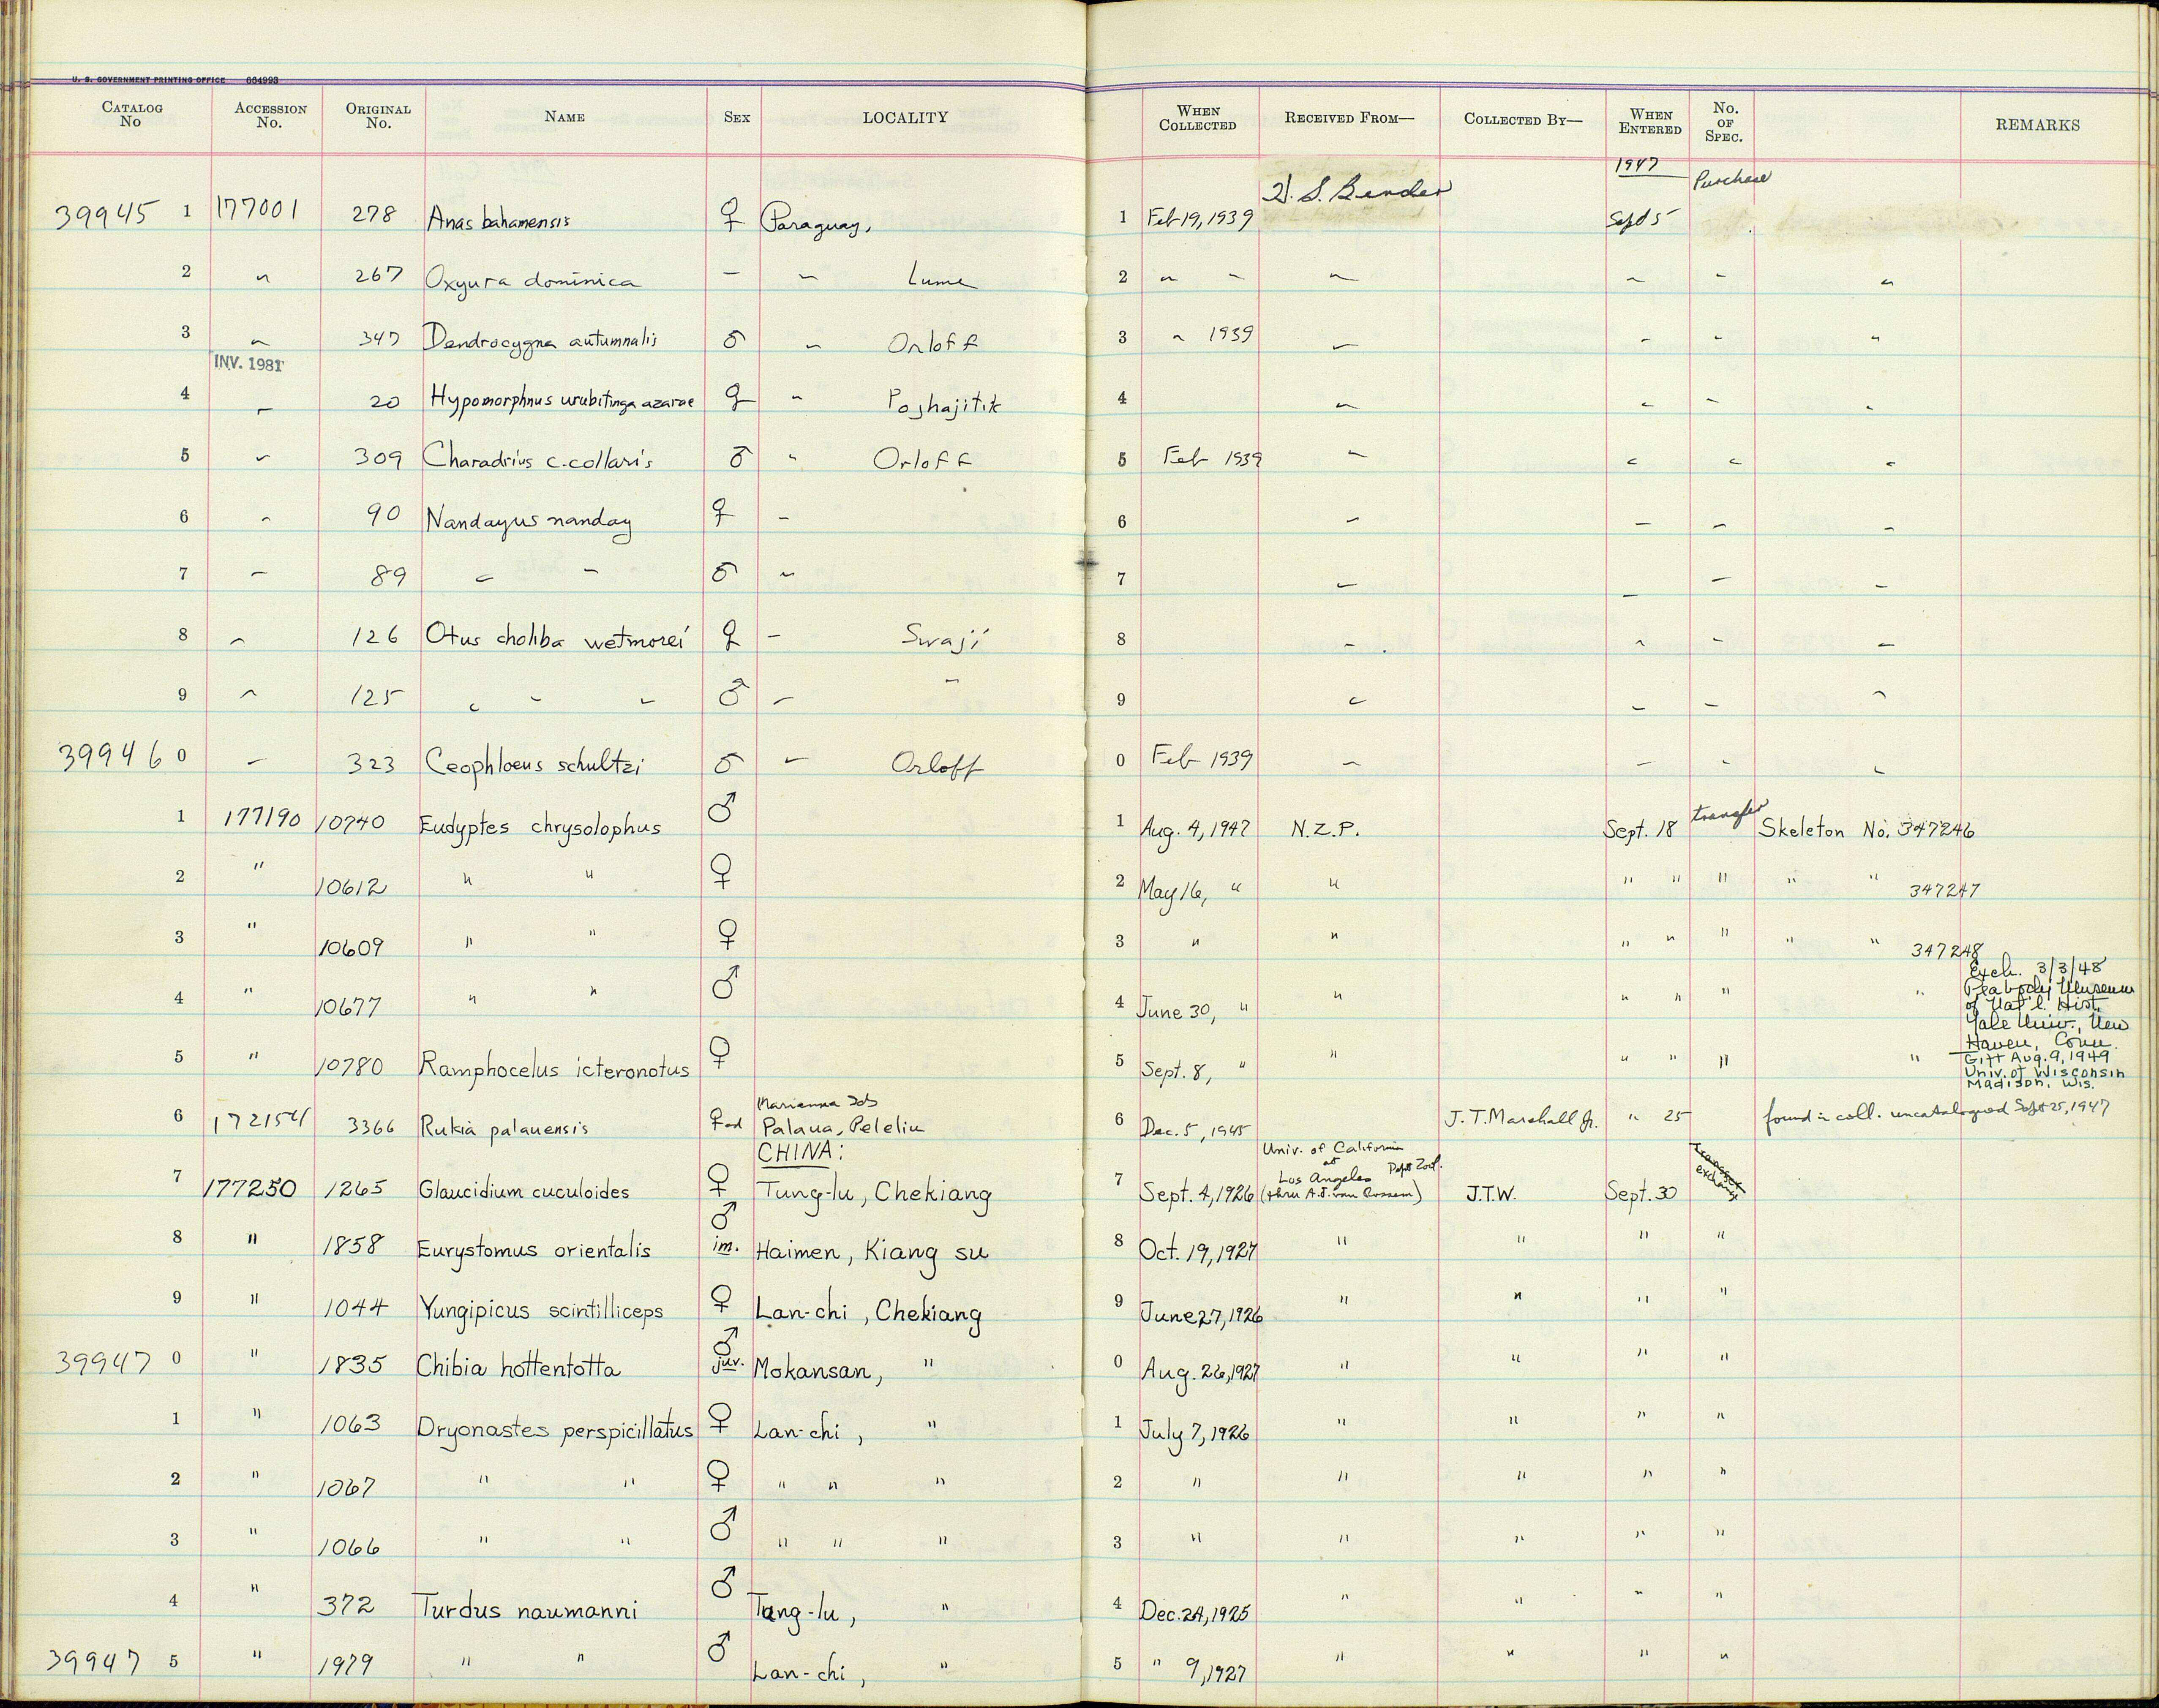 U. S. GOVERNMENT PRINTING OFFICE 664993
CATALOG No ACCESSION No. ORIGINAL No. NAME SEX LOCALITY WHEN COLLECTED RECEIVED FROM— COLLECTED BY— WHEN ENTERED No. OF SPEC. REMARKS
1947
Purchase
39945 1 177001 278 Anas bahamensis ♀ Paraguay, 1 Feb 19, 1939 H. S. Bender Sept 5
2 " 267 Oxyura dominica — " Lume 2 " " " " " "
3 " 347 Dendrocygna autumnalis ♂ " Orloff 3 " 1939 " " " "
INV. 1981
4 " 20 Hypomorphnus urubitinga azarae ♀ " Poshajitik 4 " " " "
5 " 309 Charadrius c. collaris ♂ " Orloff 5 Feb 1939 " " " "
6 " 90 Nandayus nanday ♀ " 6 " " " "
7 " 89 " " ♂ " 7 " " " "
8 " 126 Otus choliba wetmorei ♀ " Swaji 8 " " " "
9 " 125 " " " ♂ " " 9 " " " "
39946 0 " 323 Ceophloeus schultzi ♂ " Orloff 0 Feb 1939 " " " "
1 177190 10740 Eudyptes chrysolophus ♂ 1 Aug. 4, 1947 N.Z.P. Sept. 18 transfer Skeleton No. 347246
2 " 10612 " " ♀ 2 May 16, " " " " " " " 347247
3 " 10609 " " ♀ 3 " " " " " " " 347248
4 " 10677 " " ♂ 4 June 30, " " " " " "
Exch. 3/3/48
Peabody Museum
of Nat'l. Hist.
Yale Univ., New
Haven, Conn.
5 " 10780 Ramphocelus icteronotus ♀ 5 Sept. 8, " " " " " "
Gift Aug. 9, 1949
Univ. of Wisconsin
Madison, Wis.
Marianna Ids
6 172154 3366 Rukia palauensis ♀ad Palaua, Peleliu 6 Dec. 5, 1945 J. T. Marshall Jr. " 25 found in coll. uncatalogued Sept 25, 1947
CHINA:
Univ. of California
at
Los Angeles Dept Zool.
(thru A.J. van Rossem)
7 177250 1265 Glaucidium cuculoides ♀ Tung-lu, Chekiang 7 Sept. 4, 1926 J.T.W. Sept. 30 exchange
8 " 1858 Eurystomus orientalis ♂ im. Haimen, Kiang su 8 Oct. 19, 1927 " " " "
9 " 1044 Yungipicus scintilliceps ♀ Lan-chi, Chekiang 9 June 27, 1926 " " " "
39947 0 " 1835 Chibia hottentotta ♂ juv. Mokansan, " 0 Aug. 26, 1927 " " " "
1 " 1063 Dryonastes perspicillatus ♀ Lan-chi, " 1 July 7, 1926 " " " "
2 " 1067 " " ♀ " " " 2 " " " " "
3 " 1066 " " ♂ " " " 3 " " " " "
4 " 372 Turdus naumanni ♂ Tung-lu, " 4 Dec. 24, 1925 " " " "
39947 5 " 1979 " " ♂ Lan-chi, " 5 " 9, 1927 " " " "